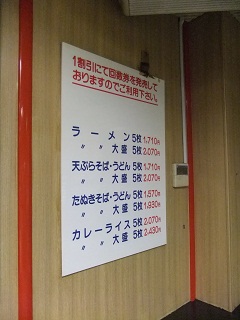 1割引にて回数券を発売して
おりますのでご利用下さい。
ラーメン 5枚 1,710円
〃 〃 大盛 5枚 2,070円
天ぷらそば・うどん 5枚 1,710円
〃 〃 大盛 5枚 2,070円
たぬきそば・うどん 5枚 1,570円
〃 〃 大盛 5枚 1,930円
カレーライス 5枚 2,070円
〃 〃 大盛 5枚 2,430円